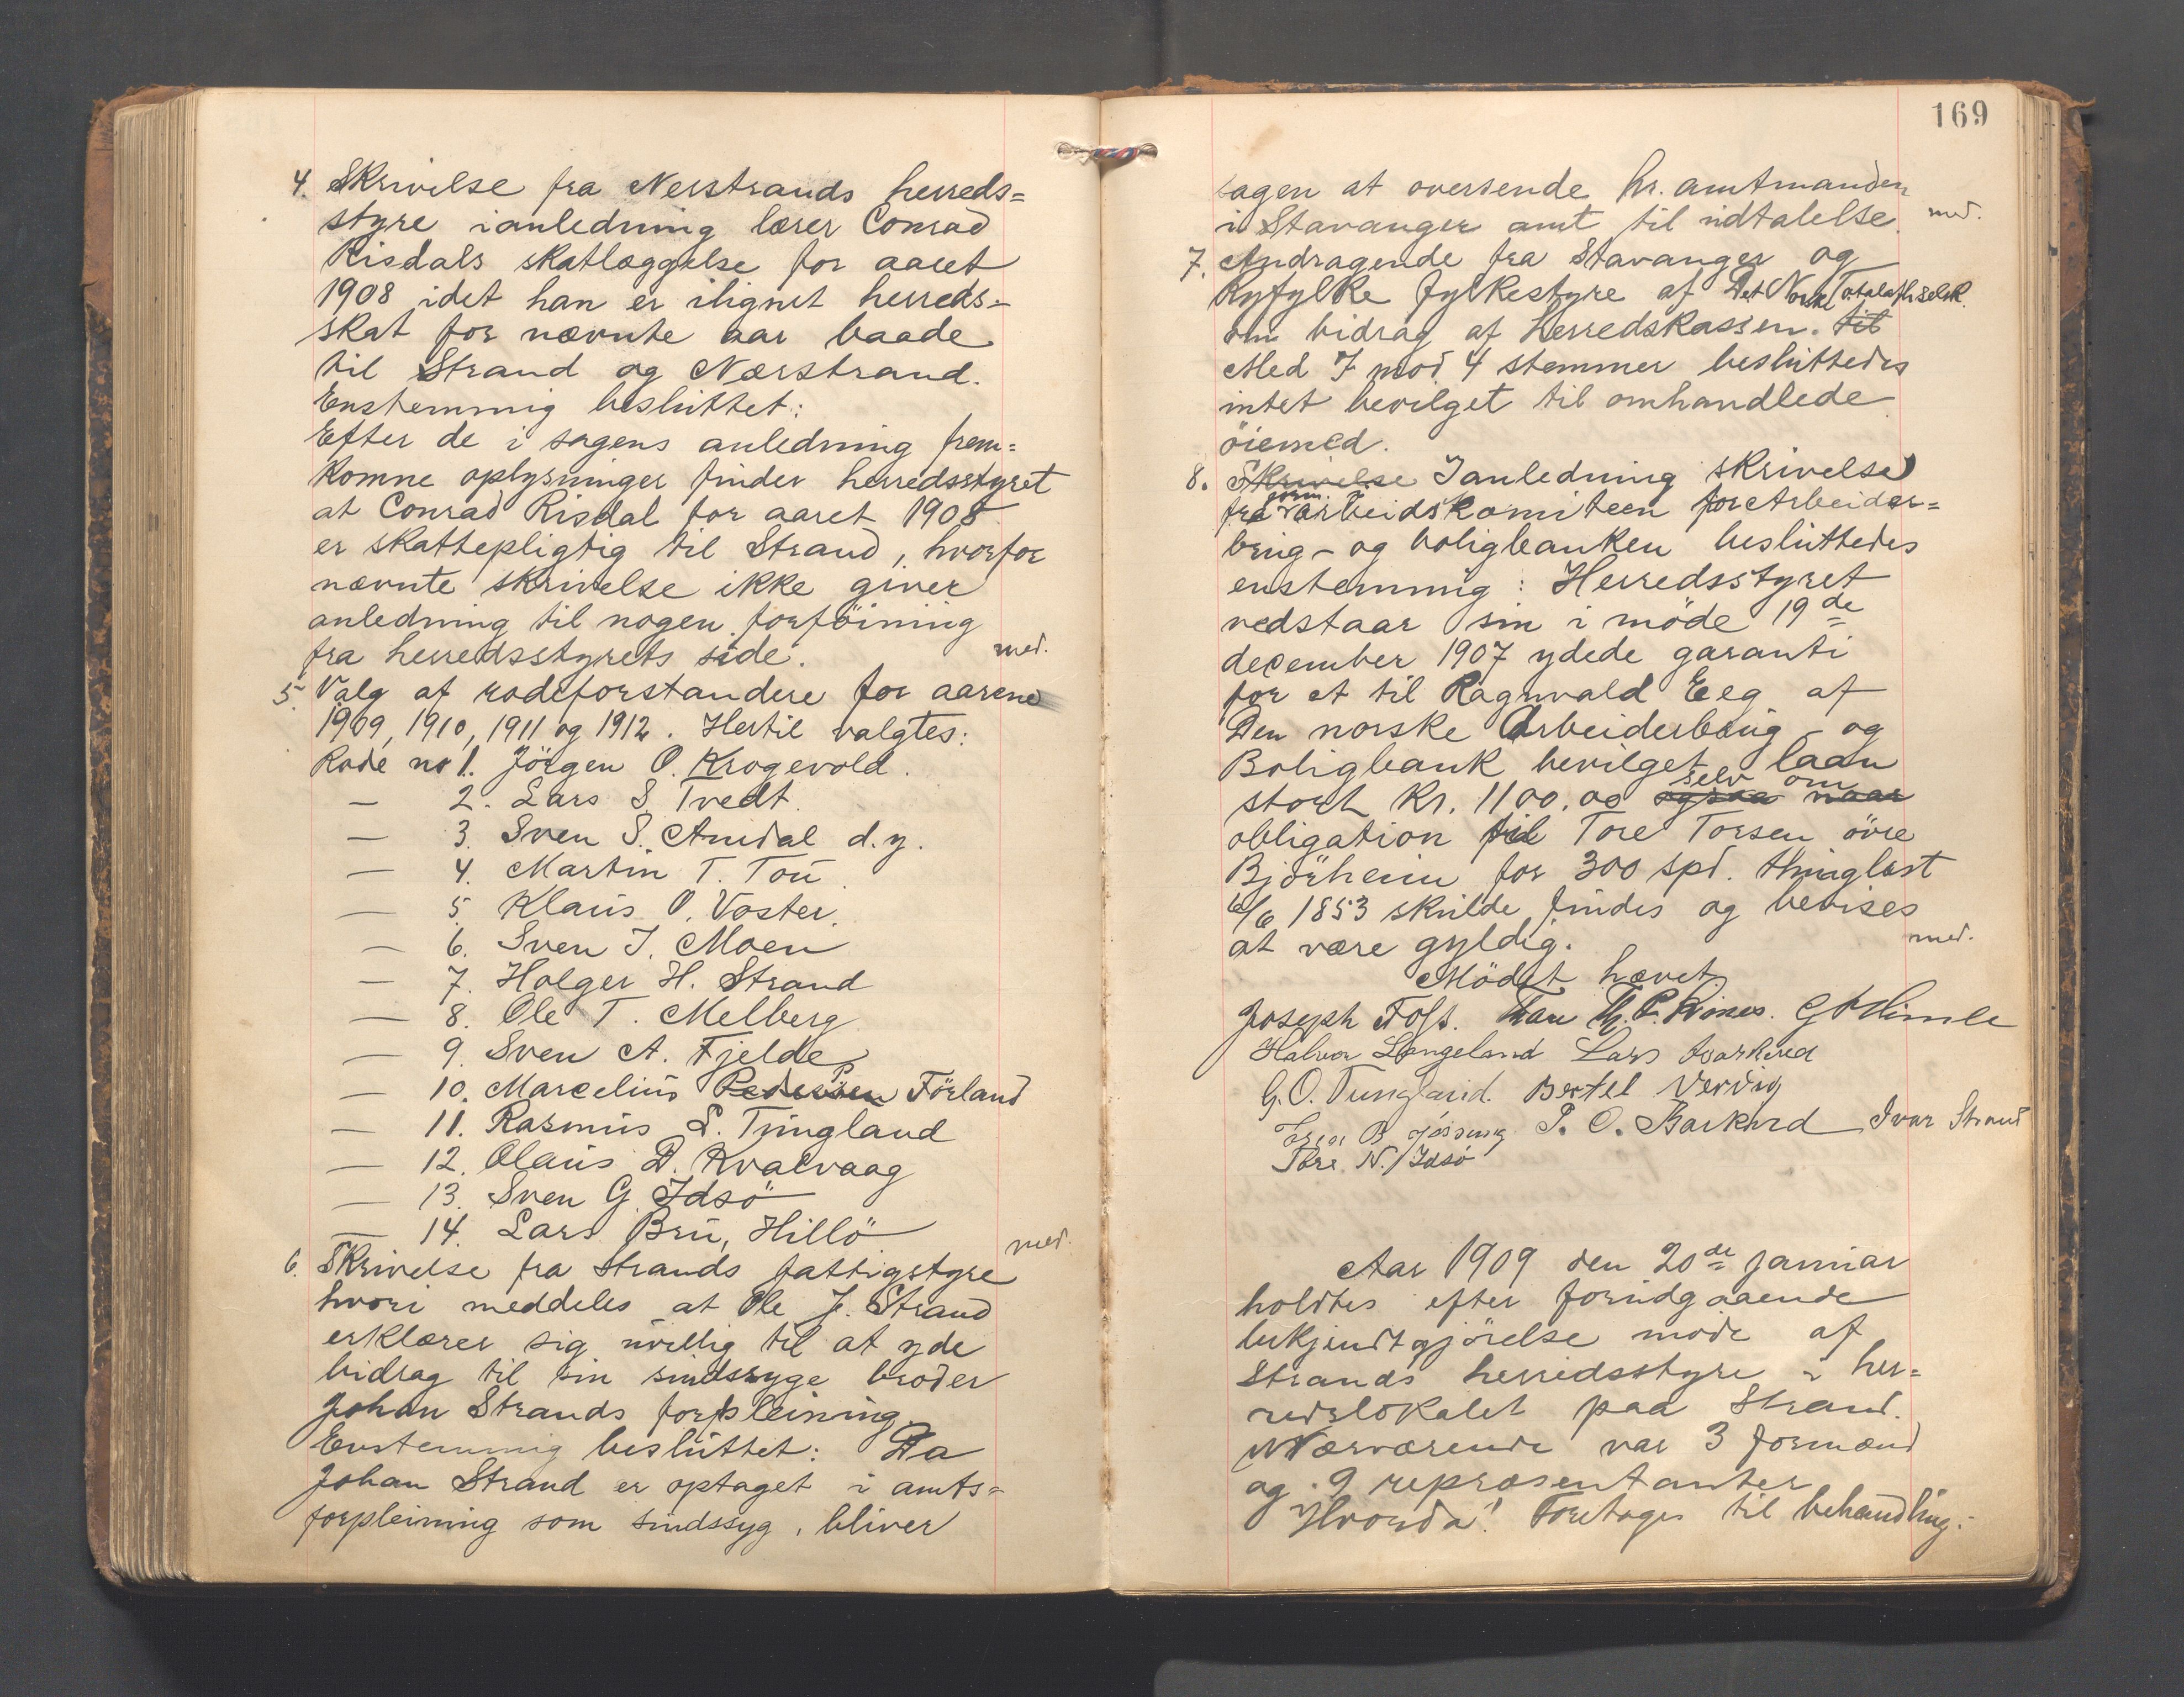 4. Skrivelse fra Nerstrands herreds=
styre ianledning lærer Conrad
Risdals skatlæggelse for aaret
1908 idet han er ilignet herreds-
skat for nævnte aar baade
til Strand og Nærstrand.
Enstemmig besluttet:
Efter de i sagens anledning frem=
komne oplysninger finder herredsstyret
at Conrad Risdal for aaret 1908
er skattepligtig til Strand, hvorfor
nævnte skrivelse ikke giver
anledning til nogen forføining
fra herredsstyrets side. med.
5. Valg af rodeforstandere for aarene
1909, 1910, 1911 og 1912. Hertil valgtes:
Rode no 1. Jörgen O. Krogevold.
— 2. Lars S. Tvedt.
— 3. Sven S. Amdal d.y.
— 4. Martin T. Tou.
— 5. Klaus O. Voster.
— 6. Sven J. Moen
— 7. Holger H. Strand
— 8. Ole T. Melberg
— 9. Sven A. Fjelde
— 10. Marcelius Pedersen P. Förland
— 11. Rasmus L. Tungland
— 12. Olaus D. Kvalvaag
— 13. Sven G. Idsö
— 14. Lars Bru, Hillö med.
6. Skrivelse fra Strands fattigstyre
hvori meddeles at Ole J. Strand
erklærer sig uvillig til at yde
bidrag til sin sindssyge broder
Johan Strands forpleining.
Enstemmig besluttet: Da
Johan Strand er optaget i amts-
forpleining som sindssyg, bliver
169
sagen at oversende hr. amtmanden
i Stavanger amt til udtalelse. med.
7. Andragende fra Stavanger og
Ryfylke fylkestyre af Det Norske Totalafh.selsk.
om bidrag af Herredskassen. til
Med 7 mod 4 stemmer besluttedes
intet bevilget til omhandlede
öiemed.
8. Skrivelse Ianledning skrivelse
fra form. arbeidskomiteen for Arbeider=
brug- og boligbanken besluttedes
enstemmig: Herredsstyret
vedstaar sin i möde 19de
december 1907 ydede garanti
for et til Ragnvald Eeg af
Den norske Arbeiderbrug- og
Boligbank bevilget laan
stort Kr. 1100.00 ogsaa naar selv om
obligation til Tore Torsen övre
Björheim for 300 spd. thinglæst
/6 1853 skulde findes og bevises
at være gyldig. med.
Mödet hævet
Joseph Tofs. G A Himle
Halvor Langeland Lars Barkved
G. O. Tungland. Bertel Vervig
B. Jössang P. O. Barkved Ivar Strand
Tore N. Idsö
Aar 1909 den 20de januar
holdtes efter forudgaaende
bekjendtgjörelse möde af
Strands herredsstyre i her=
redslokalet paa Strand.
Nærværende var 3 formænd
og 9 repræsentanter
Hvorda! Foretages til behandling: